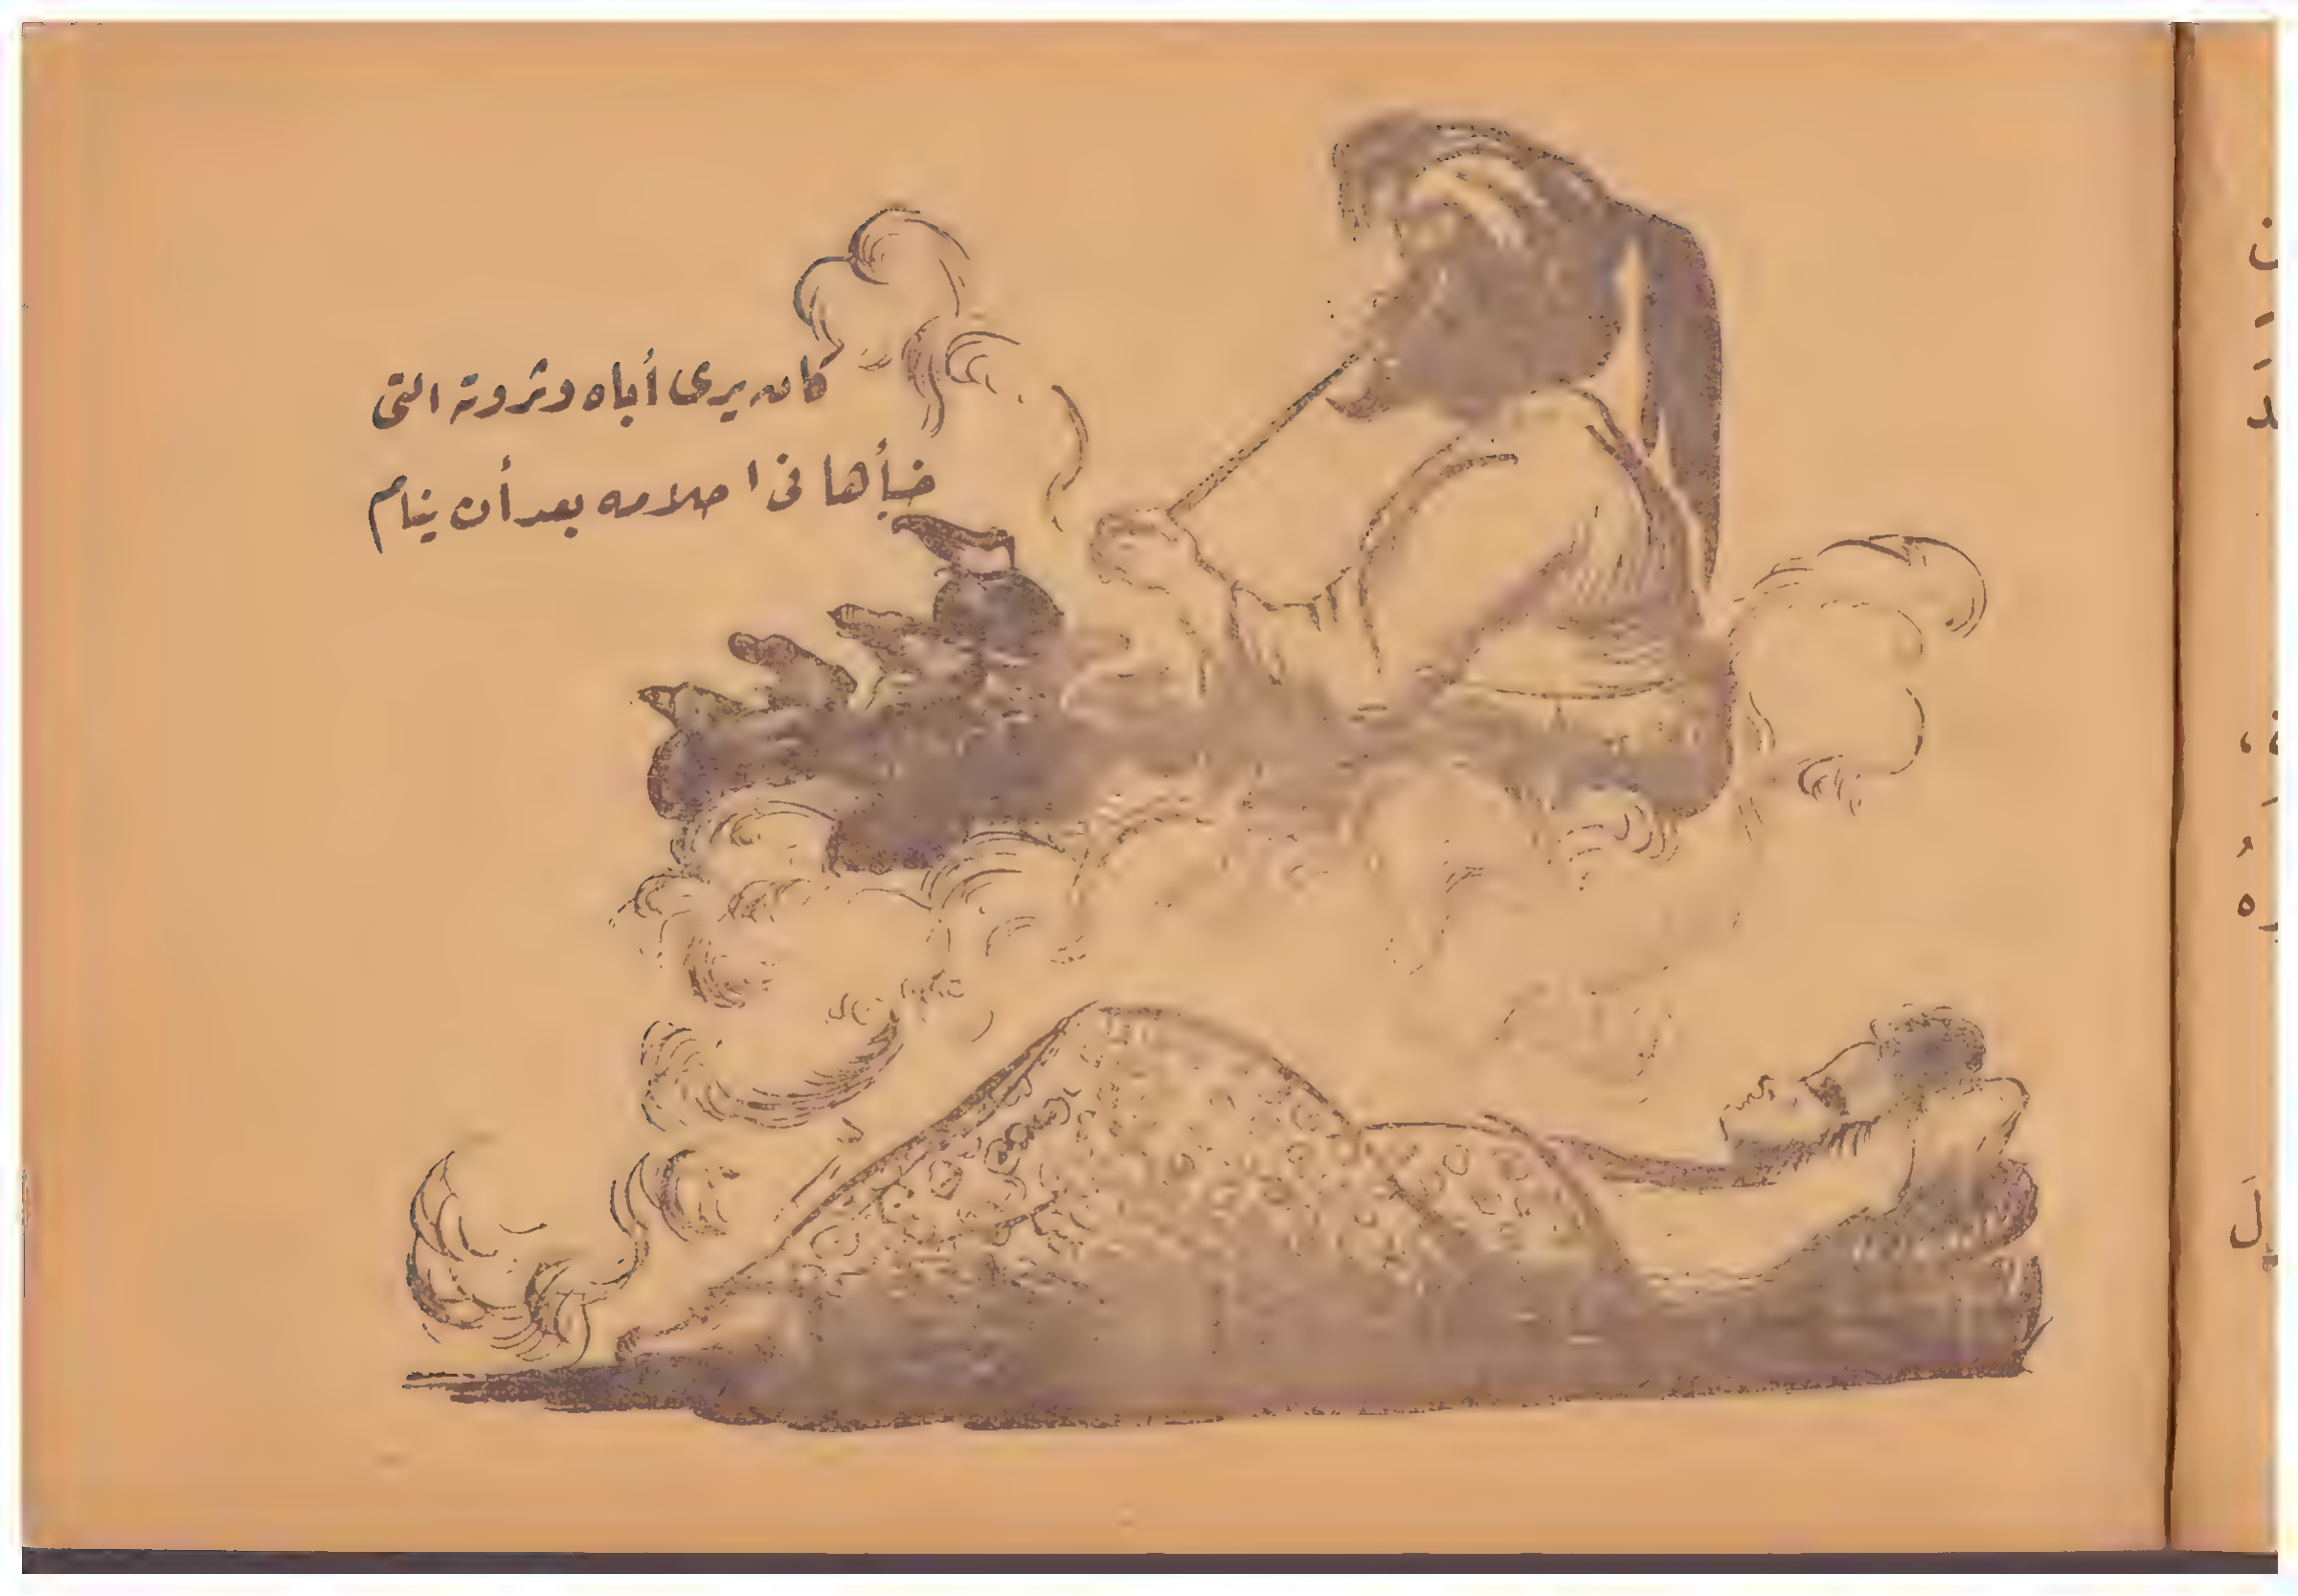 كان يرى أباه وثروته التى
خبأها فى احلامه بعد أن ينام